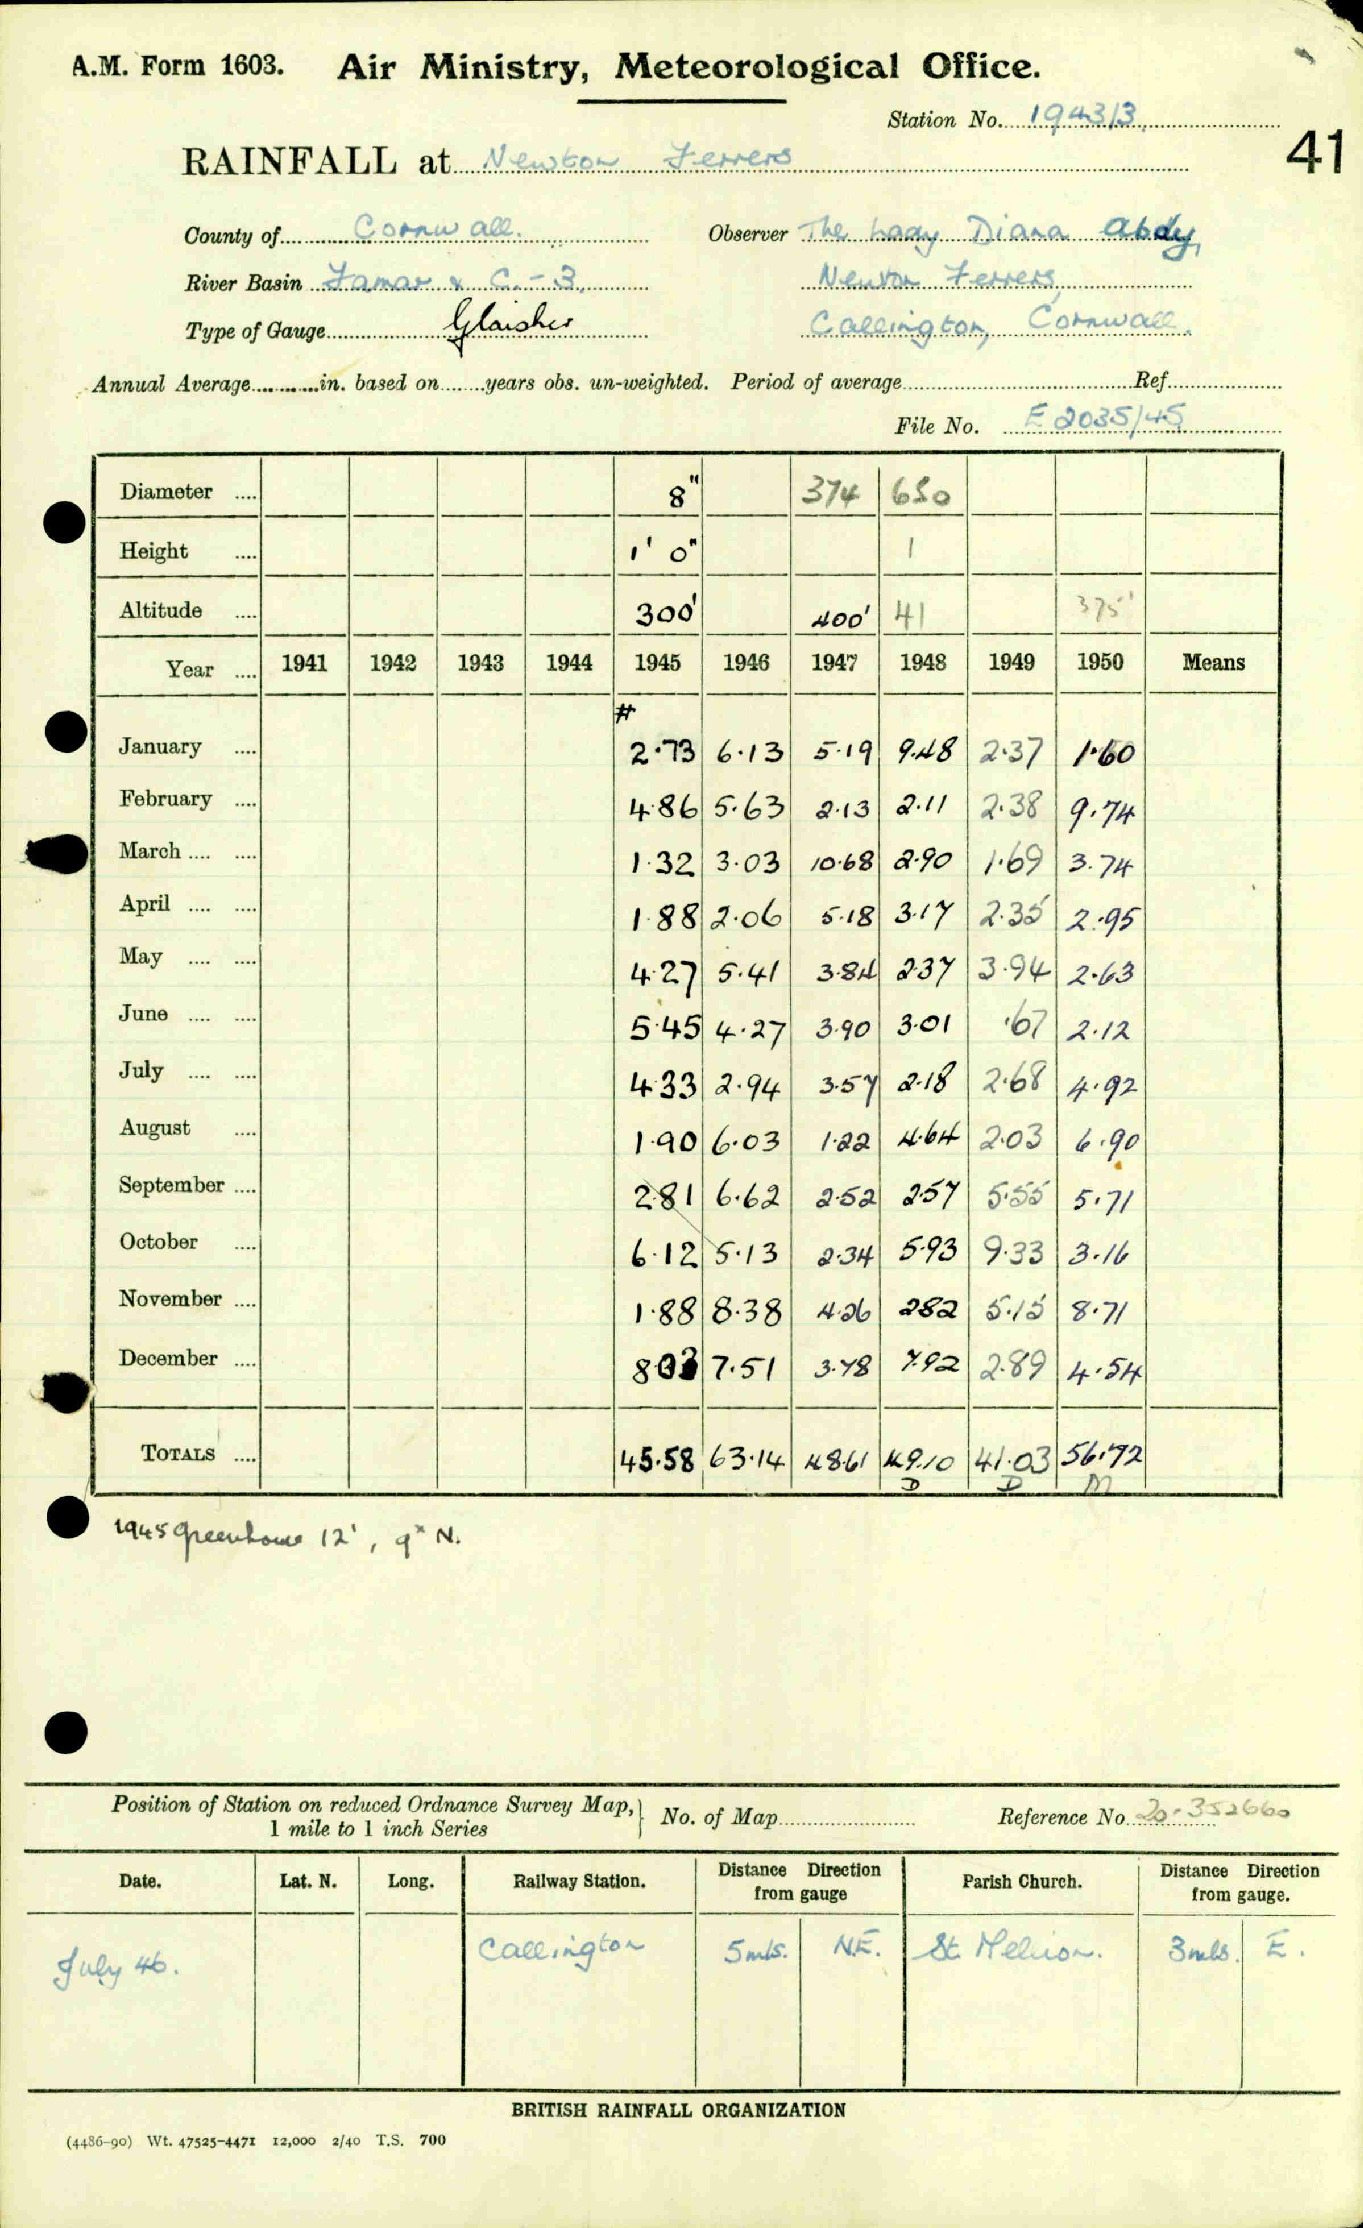 A.M. Form 1603. Air Ministry, Meteorological Office.
Station No. 1943/3.
41
RAINFALL at Newton Ferrers
County of Cornwall. Observer The Lady Diana Abdy,
River Basin Tamar & C. - 3. Newton Ferrers,
Type of Gauge Glaisher Callington, Cornwall.
Annual Average in. based on years obs. un-weighted. Period of average Ref.
File No. E 2035/45
Diameter 8" 374 650
Height 1' 0" 1
Altitude 300' 400' 41 375'
Year 1941 1942 1943 1944 1945 1946 1947 1948 1949 1950 Means
#
January 2.73 6.13 5.19 9.48 2.37 1.60
February 4.86 5.63 2.13 2.11 2.38 9.74
March 1.32 3.03 10.68 2.90 1.69 3.74
April 1.88 2.06 5.18 3.17 2.35 2.95
May 4.27 5.41 3.84 2.37 3.94 2.63
June 5.45 4.27 3.90 3.01 .67 2.12
July 4.33 2.94 3.57 2.18 2.68 4.92
August 1.90 6.03 1.22 4.64 2.03 6.90
September 2.81 6.62 2.52 2.57 5.55 5.71
October 6.12 5.13 2.34 5.93 9.33 3.16
November 1.88 8.38 4.26 2.82 5.15 8.71
December 8.03 7.51 3.78 7.92 2.89 4.54
TOTALS 45.58 63.14 48.61 49.10 41.03 56.72
D D M
1945 Greenhouse 12', 9x N.
Position of Station on reduced Ordnance Survey Map, No. of Map Reference No. 20-352660
1 mile to 1 inch Series
Date. Lat. N. Long. Railway Station. Distance Direction from gauge Parish Church. Distance Direction from gauge.
July 46. Callington 5 mls. N.E. St. Mellion. 3 mls. E.
BRITISH RAINFALL ORGANIZATION
(4486-90) Wt. 47525-4471 12,000 2/40 T.S. 700